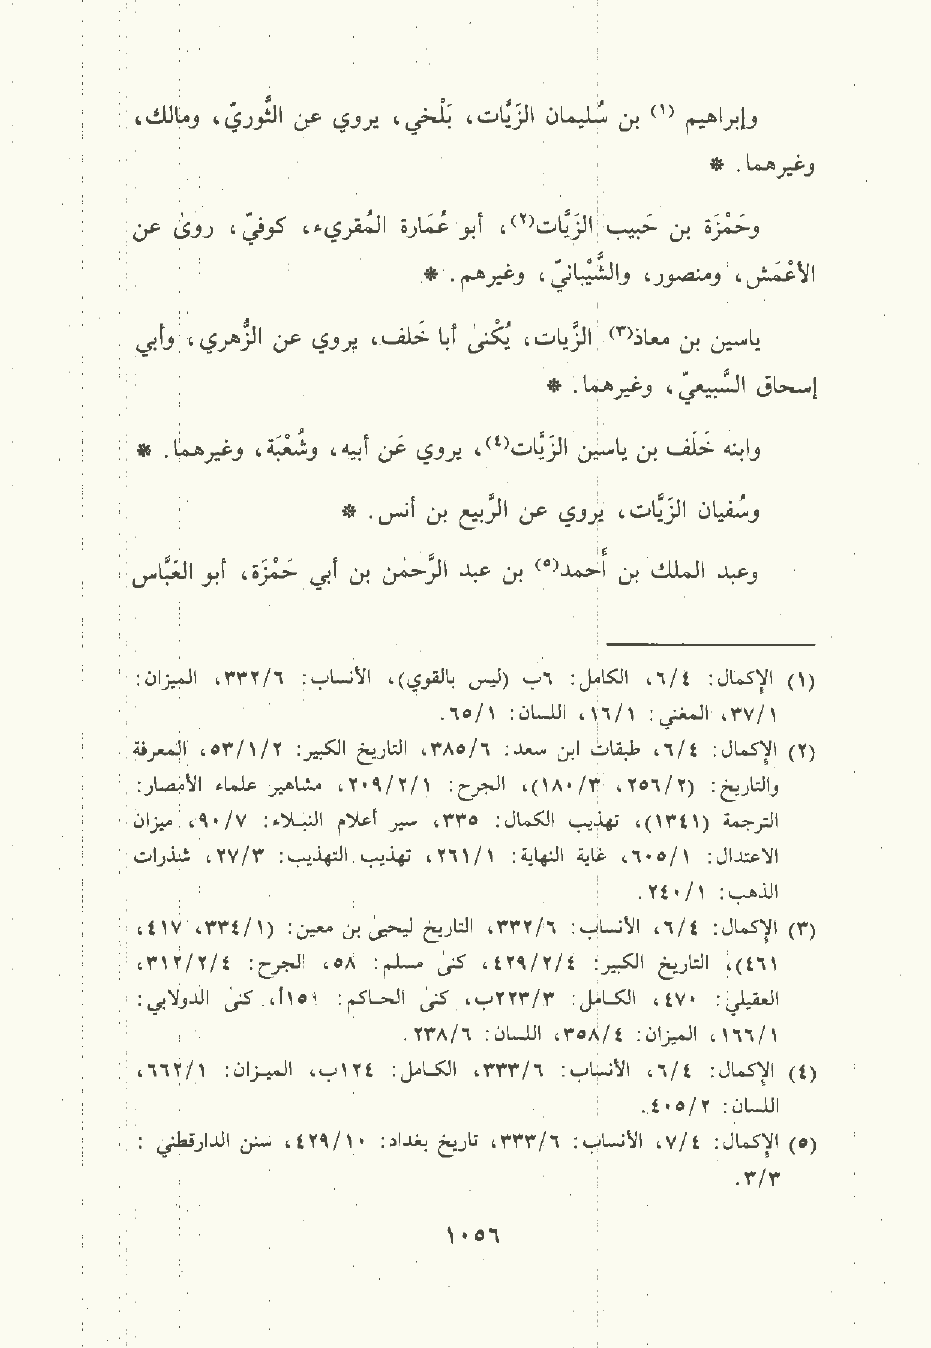 وإبراهيم (١) بن سُليمان الزَيَّات، بَلْخي، يروي عن الثَّوريّ، ومالك،
وغيرهما. *
وحَمْزَة بن حَبيب الزَيَّات(٢)، أبو عُمَارة المُقريء، كوفيّ، روىٰ عن
الأعْمَش، ومنصور، والشَّيْبانيّ، وغيرهم. *
ياسين بن معاذ(٣) الزيَّات، يُكْنىٰ أبا خَلف، يروي عن الزُّهري، وأبي
إسحاق السَّبيعيّ، وغيرهما. *
وابنه خَلَف بن ياسين الزَيَّات(٤)، يروي عَن أبيه، وشُعْبَة، وغيرهما. *
وسُفيان الزَيَّات، يروي عن الرَّبيع بن أنس. *
وعبد الملك بن أَحمد(٥) بن عبد الرَّحمٰن بن أبي حَمْزَة، أبو العَبَّاس
(١) الإكمال: ٦/٤، الكامل: ٦ب (ليس بالقوي)، الأنساب: ٣٣٢/٦، الميزان:
٣٧/١، المغني: ١٦/١، اللسان: ٦٥/١.
(٢) الإكمال: ٦/٤، طبقات ابن سعد: ٣٨٥/٦، التاريخ الكبير: ٥٣/١/٢، المعرفة
والتاريخ: (٢٥٦/٢، ١٨٠/٣)، الجرح: ٢٠٩/٢/١، مشاهير علماء الأمصار:
الترجمة (١٣٤١)، تهذيب الكمال: ٣٣٥، سير أعلام النبلاء: ٩٠/٧، ميزان
الاعتدال: ٦٠٥/١، غاية النهاية: ٢٦١/١، تهذيب التهذيب: ٢٧/٣، شذرات
الذهب: ٢٤٠/١.
(٣) الإكمال: ٦/٤، الأنساب: ٣٣٢/٦، التاريخ ليحيىٰ بن معين: (٣٣٤/١، ٤١٧،
٤٦١)، التاريخ الكبير: ٤٢٩/٢/٤، كنىٰ مسلم: ٥٨، الجرح: ٣١٢/٢/٤،
العقيلي: ٤٧٠، الكامل: ٢٢٣/٣ب، كنىٰ الحاكم: ١٥١أ، كنىٰ الدولابي:
١٦٦/١، الميزان: ٣٥٨/٤، اللسان: ٢٣٨/٦.
(٤) الإكمال: ٦/٤، الأنساب: ٣٣٣/٦، الكامل: ١٢٤ب، الميزان: ٦٦٢/١،
اللسان: ٤٠٥/٢.
(٥) الإكمال: ٧/٤، الأنساب: ٣٣٣/٦، تاريخ بغداد: ٤٢٩/١٠، سنن الدارقطني :
٣/٣.
١٠٥٦